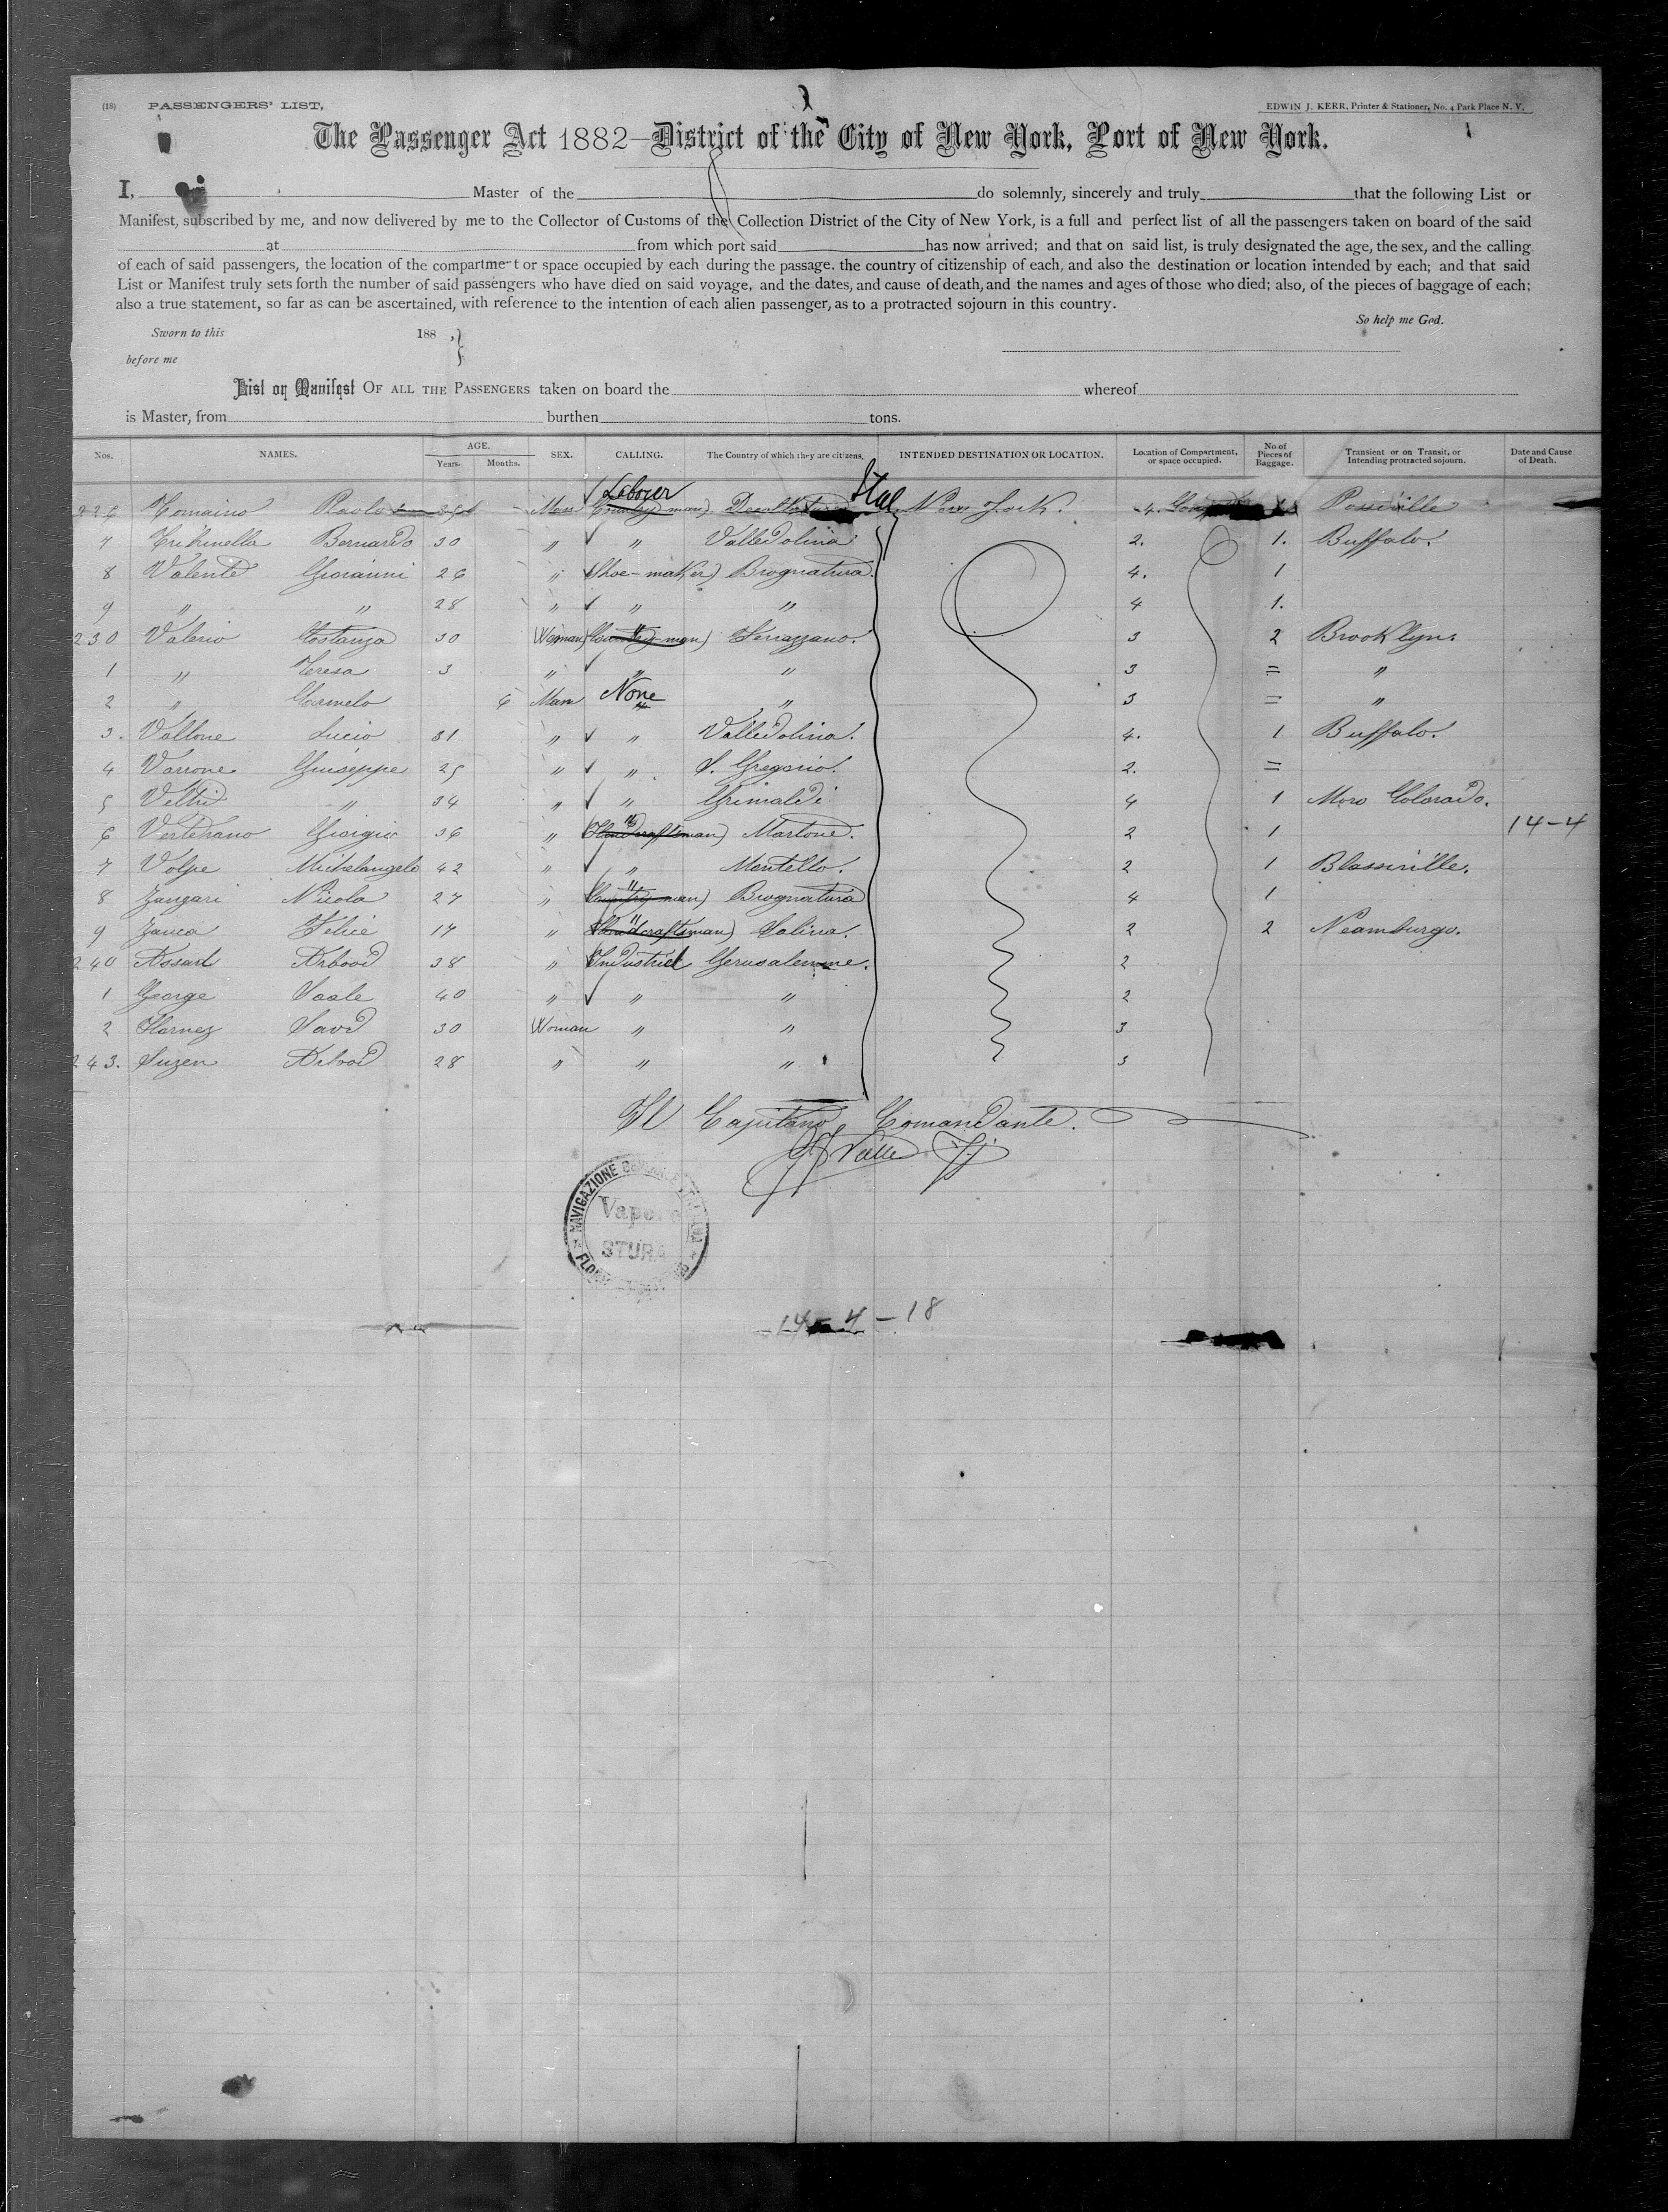 (18) PASSENGERS' LIST,
EDWIN J. KERR, Printer & Stationer, No. 4 Park Place N. Y.
The Passenger Act 1882—District of the City of New York, Port of New York.
I, Master of the do solemnly, sincerely and truly that the following List or
Manifest, subscribed by me, and now delivered by me to the Collector of Customs of the Collection District of the City of New York, is a full and perfect list of all the passengers taken on board of the said
at from which port said has now arrived; and that on said list, is truly designated the age, the sex, and the calling
of each of said passengers, the location of the compartment or space occupied by each during the passage. the country of citizenship of each, and also the destination or location intended by each; and that said
List or Manifest truly sets forth the number of said passengers who have died on said voyage, and the dates, and cause of death, and the names and ages of those who died; also, of the pieces of baggage of each;
also a true statement, so far as can be ascertained, with reference to the intention of each alien passenger, as to a protracted sojourn in this country.
So help me God.
Sworn to this 188 ,}
before me
List or Manifest OF ALL THE PASSENGERS taken on board the whereof
is Master, from burthen tons.
Nos. NAMES. AGE. Years. Months. SEX. CALLING. The Country of which they are citizens. INTENDED DESTINATION OR LOCATION. Location of Compartment, or space occupied. No of Pieces of Baggage. Transient or on Transit, or Intending protracted sojourn. Date and Cause of Death.
Laborer Ital
226 Tomaino Paolo Man (Country-man) New York. 4.
7 Bernardo 30 " " Valledolina 2. 1. Buffalo.
8 Valente Giovanni 26 " (Shoe-maker) Brognatura. 4. 1
9 " " 28 " " " 4 1.
230 Valerio Costanza 30 Woman (Country-man) Ferrazzano. 3 2 Brooklyn.
1 " Teresa 3 " " " 3 = "
2 " Carmelo 6 Man None " 3 = "
3. Vallone Lucio 31 " " Valledolina. 4. 1 Buffalo.
4 Varrone Giuseppe 25 " " S. Gregorio. 2. =
5 Veltri " 34 " " Grimaldi 4 1 Moro Colorado.
6 Giorgio 36 " (Handcraftsman) Martone. 2 1 14-4
7 Volpe Michelangelo 42 " " Montello. 2 1 Blassville.
8 Zangari Nicola 27 " (Country-man) Brognatura 4 1
9 Zanca Felice 17 " (Handcraftsman) Salina. 2 2 Neamburgo.
240 Assad Arbood 38 " Industriel Gerusalemme. 2
1 George Saale 40 " " " 2
2 Harnez Savd 30 Woman " " 3
243. Suzen Arbood 28 " " " 3
Il Capitano Comandante.
Valle
NAVIGAZIONE GENERALE ITALIANA
Vapore
STURA
14-4-18